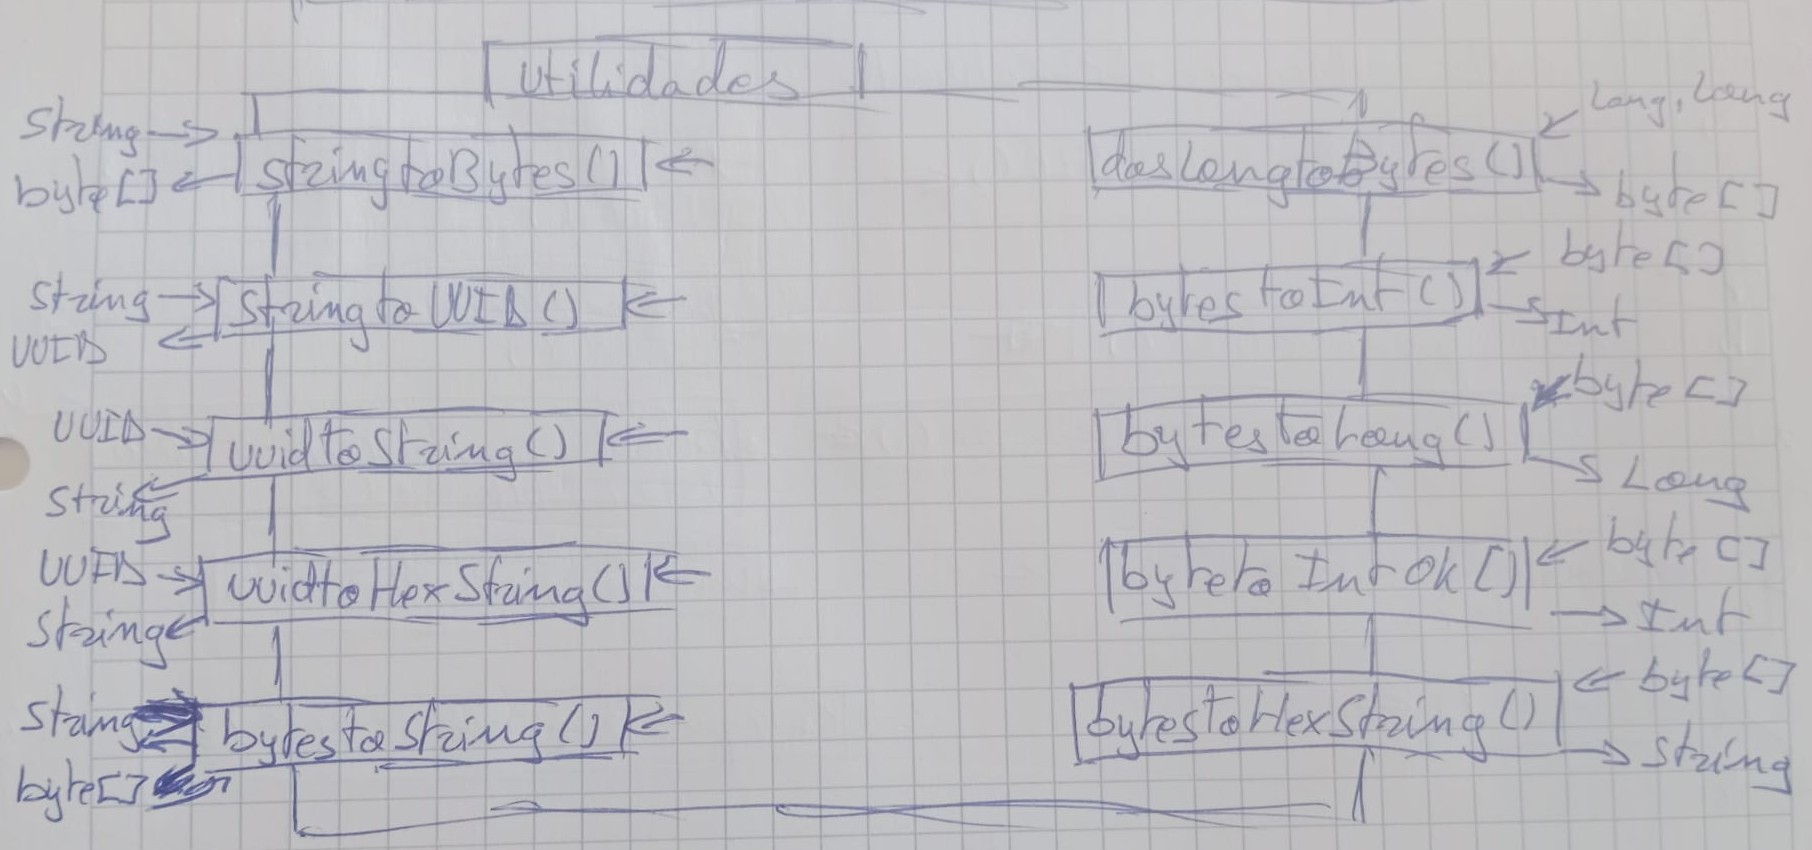 Utilidades
String
byte[]
stringtoBytes()
String
UUID
StringtoUUID()
UUID
String
uuidtoString()
UUID
String
uuidtoHexString()
String
byte[]
bytestoString()
Long, Long
dosLongtoBytes()
byte[]
byte[]
bytestoInt()
Int
byte[]
bytestoLong()
Long
byte[]
bytetoIntOk()
Int
byte[]
bytestoHexString()
String